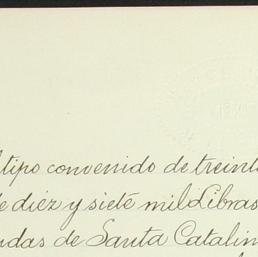 tipo convenido de treint
de diez y siete mil Libras
ndas de Santa Catalin